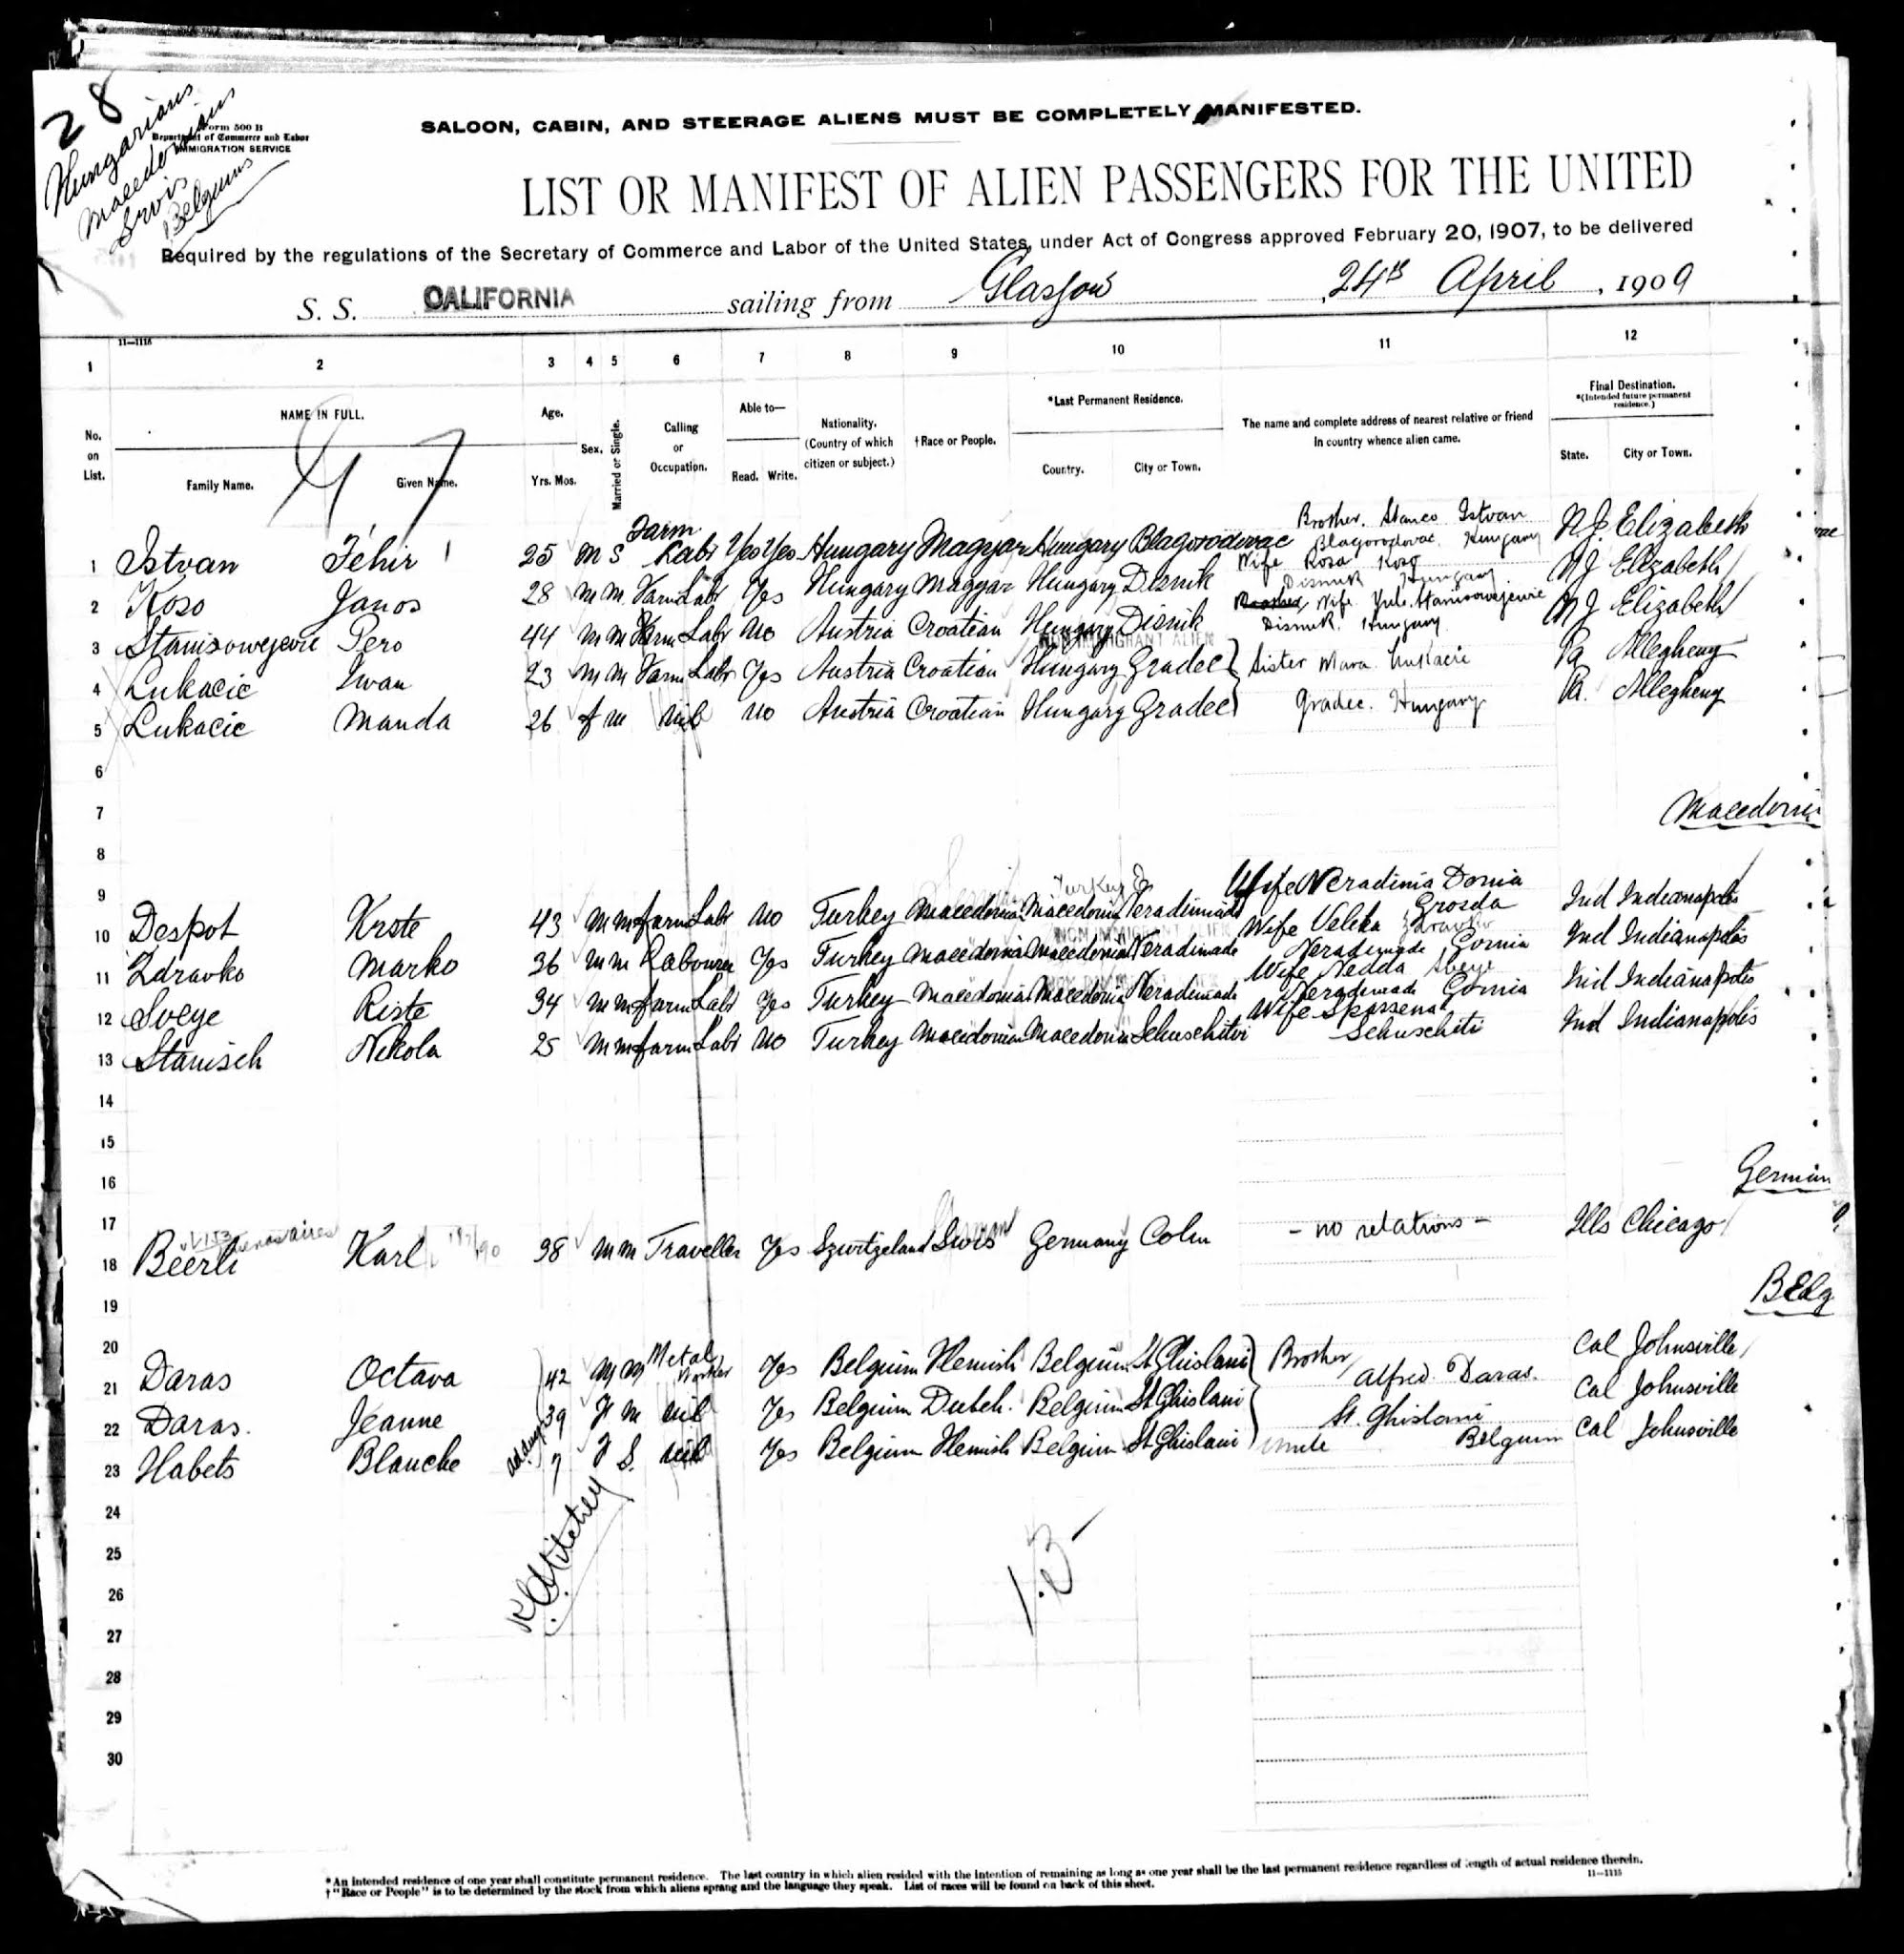 28
Hungarians
Macedonians
Swis
Belgiums
Form 500 B
Department of Commerce and Labor
IMMIGRATION SERVICE
SALOON, CABIN, AND STEERAGE ALIENS MUST BE COMPLETELY MANIFESTED.
LIST OR MANIFEST OF ALIEN PASSENGERS FOR THE UNITED
Required by the regulations of the Secretary of Commerce and Labor of the United States, under Act of Congress approved February 20, 1907, to be delivered
S. S. CALIFORNIA sailing from Glasgow, 24th April, 1909
11—1115
1 2 3 4 5 6 7 8 9 10 11 12
No. on List.
NAME IN FULL.
Family Name. Given Name.
Age.
Yrs. Mos.
Sex.
Married or Single.
Calling or Occupation.
Able to—
Read. Write.
Nationality. (Country of which citizen or subject.)
†Race or People.
*Last Permanent Residence.
Country. City or Town.
The name and complete address of nearest relative or friend in country whence alien came.
Final Destination.
*(Intended future permanent residence.)
State. City or Town.
1 Istvan Fehir 25 m S Farm Labr Yes Yes Hungary Magyar Hungary Blagorodovac Brother. Stanco Istvan Blagorodovac Hungary N.J. Elizabeth
2 Koso Janos 28 m m Farm Labr Yes Hungary Magyar Hungary Disnik Wife Rosa Koso Disnik Hungary N J Elizabeth
3 Stanisowejevic Pero 44 m m Farm Labr No Austria Croatian Hungary Disnik Wife Yule Stanisowejevic Disnik. Hungary N J Elizabeth
NON IMMIGRANT ALIEN
4 Lukacic Iwan 23 m m Farm Labr Yes Austria Croatian Hungary Gradec Sister Mara Lukacic Pa Allegheny
5 Lukacic Manda 26 f m nil no Austria Croatian Hungary Gradec Gradec. Hungary Pa. Allegheny
6
7 Macedonia
8
9
10 Despot Krste 43 m m farm Labr no Turkey Macedonia Macedonia Neradimiade Wife Neradimia Donia Grosda Ind Indianapolis
NON IMMIGRANT ALIEN
11 Zdravko Marko 36 m m Labourer Yes Turkey Macedonia Macedonia Neradimade Wife Veleka Zdravko Neradimade Gornia Ind Indianapolis
12 Sveye Riste 34 m m farm Labr Yes Turkey Macedonia Macedonia Neradimade Wife Nedda Sveye Neradimade Gornia Ind Indianapolis
13 Stanisch Nikola 25 m m farm Labr no Turkey Macedonia Macedonia Schuschitvi Wife Spassena Schuschiti Ind Indianapolis
14
15
16 German
17
18 Beerli Karl 38 m m Traveller Yes Szwitzeland Swis Germany Coln - no relations - Ills Chicago
19 Belg
20
21 Daras Octava 42 m m Metal Worker Yes Belgium Flemish Belgium St Ghislani Brother Alfred Daras. Cal Johnsville
22 Daras. Jeanne 39 F m nil Yes Belgium Dutch. Belgium St Ghislani St. Ghislani Cal Johnsville
23 Habets Blanche 7 F S. nil Yes Belgium Flemish Belgium St Ghislani Uncle Belgium Cal Johnsville
24
25
26
27
28
29
30
*An intended residence of one year shall constitute permanent residence. The last country in which alien resided with the intention of remaining as long as one year shall be the last permanent residence regardless of length of actual residence therein.
†"Race or People" is to be determined by the stock from which aliens sprang and the language they speak. List of races will be found on back of this sheet.
11—1115